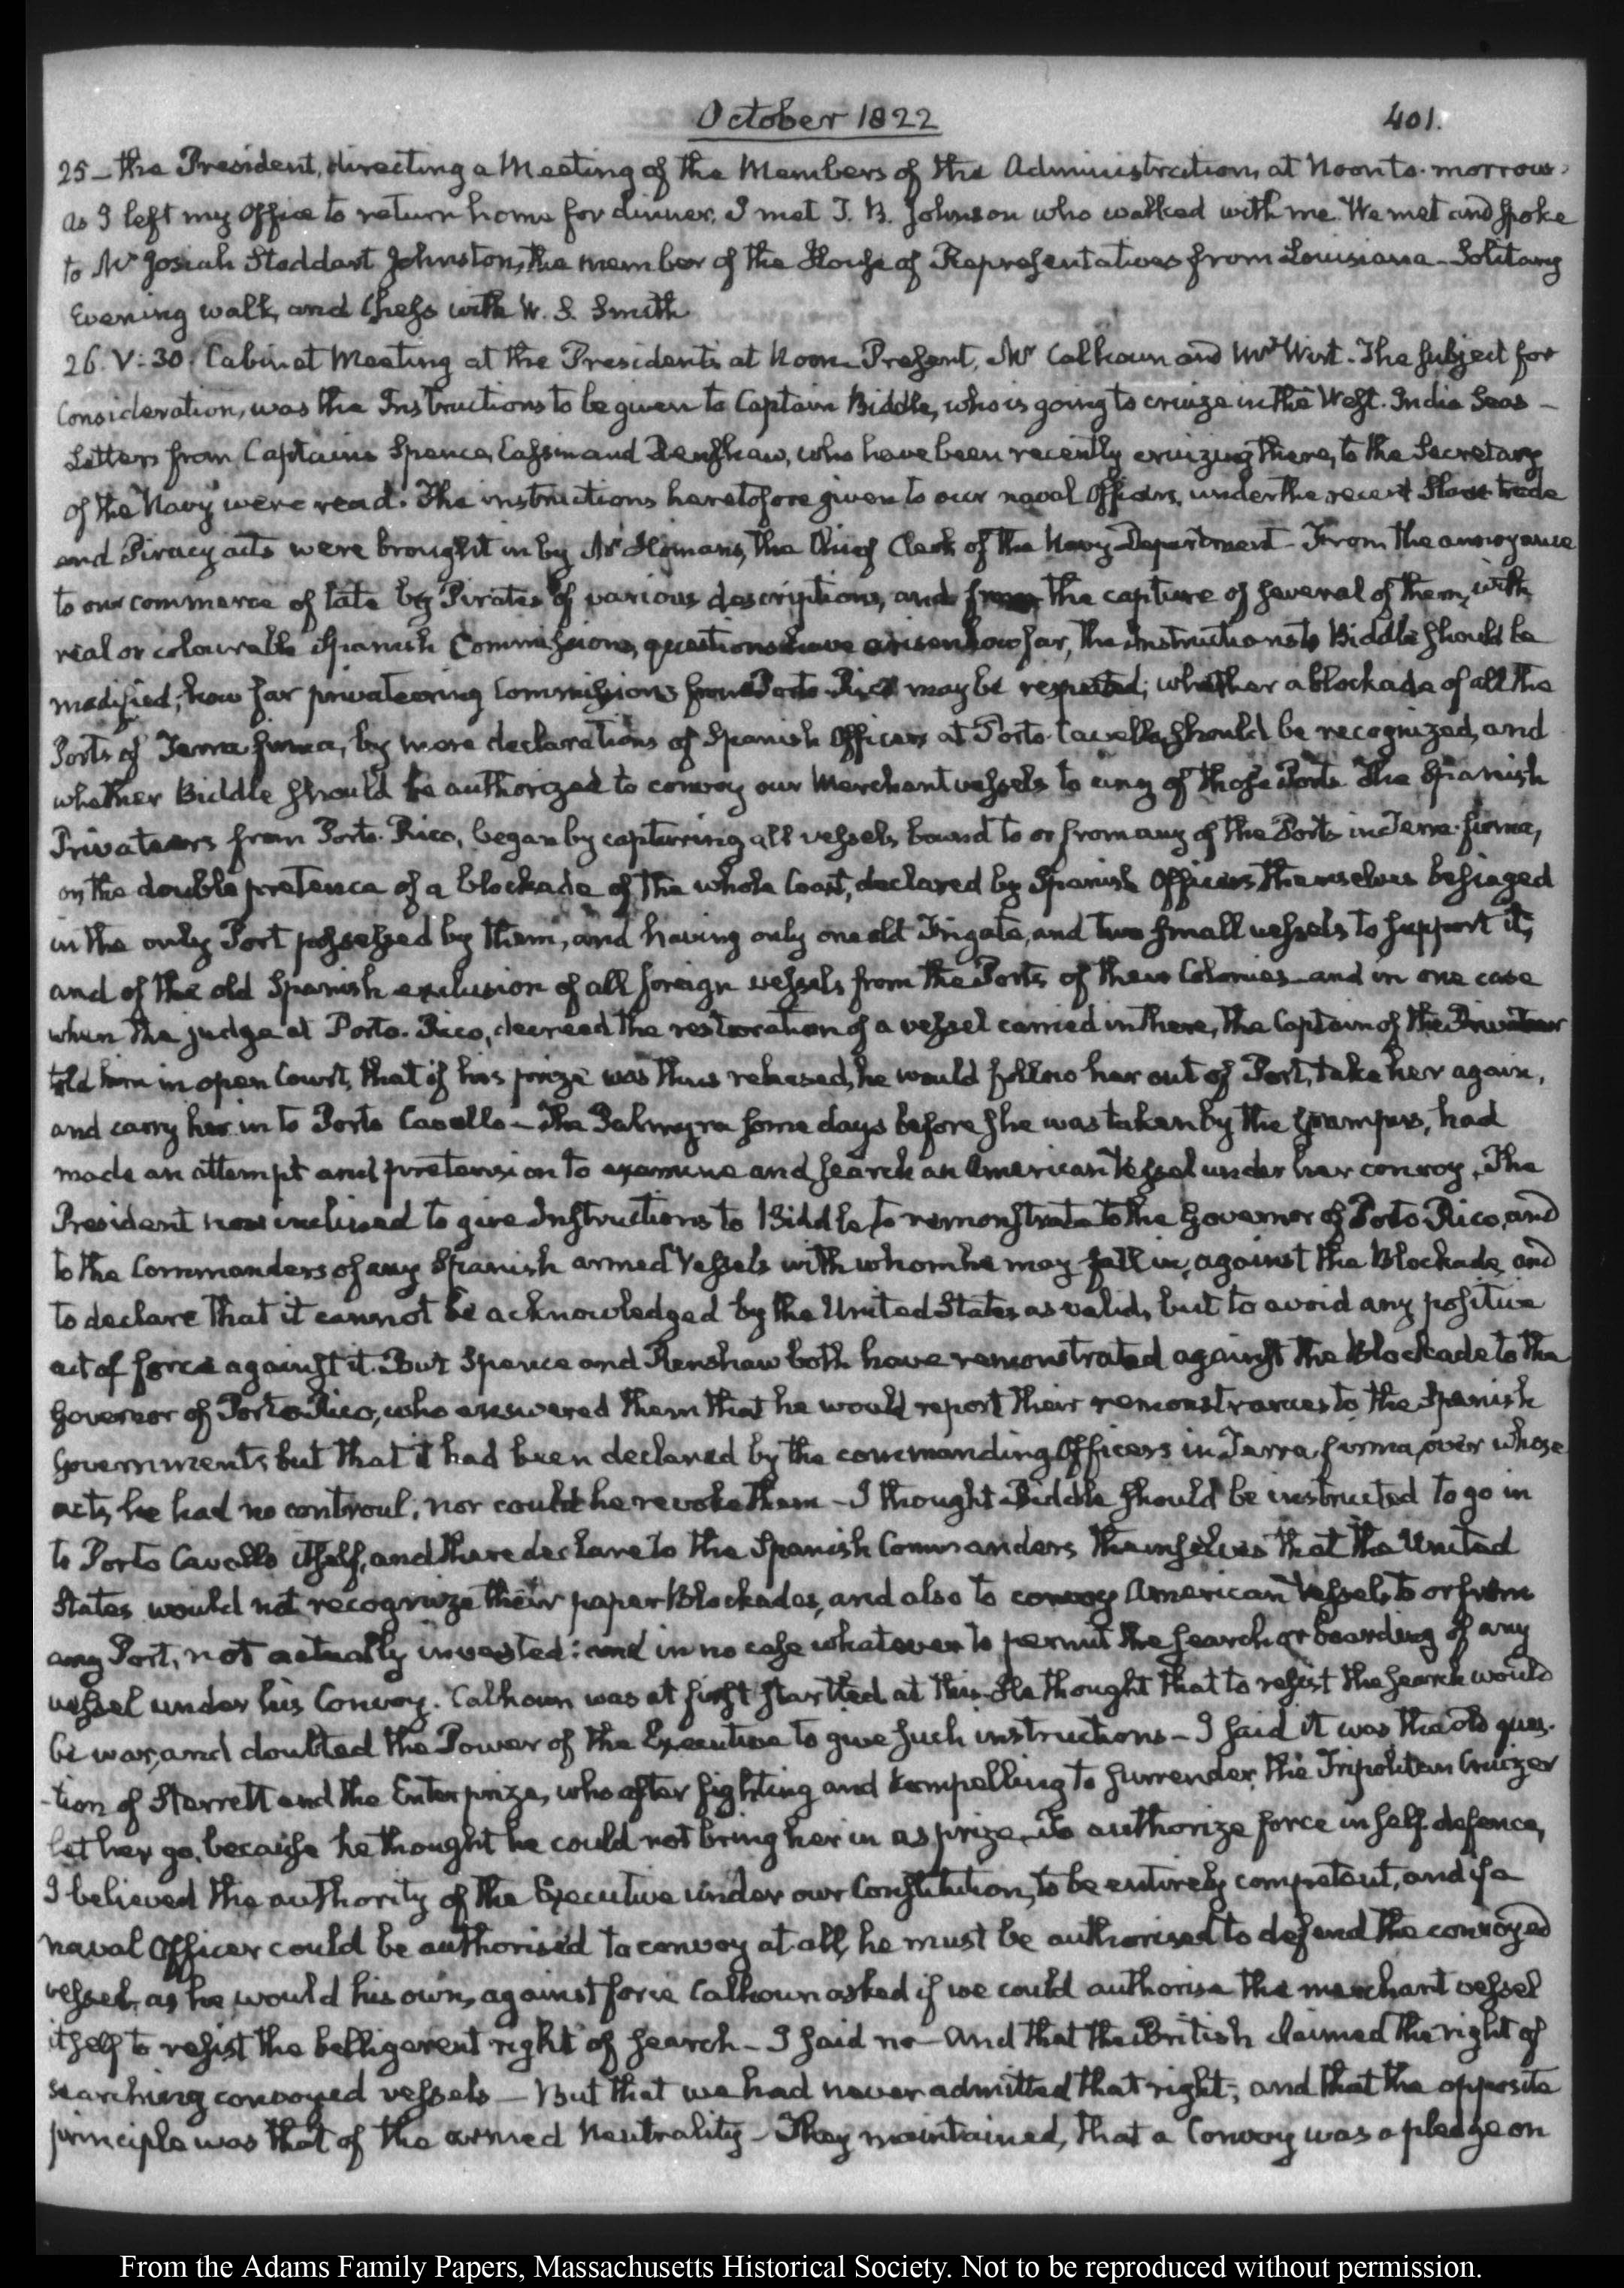 October 1822
401.
25 – the President, directing a Meeting of the Members of the Administration, at Noon to-morrow.
As I left my Office to return home for dinner, I met J. B. Johnson who walked with me. We met and spoke
to Mr Josiah Stoddart Johnston, the member of the House of Representatives from Louisiana – Solitary
Evening walk, and Chess with W. S. Smith.
26. V:30. Cabinet Meeting at the President's at Noon – Present, Mr Calhoun and Mr Wirt. The subject for
Consideration, was the Instructions to be given to Captain Biddle, who is going to cruize in the West-India Seas –
Letters from Captains Spence, Cassin and Renshaw, who have been recently cruizing there, to the Secretary
of the Navy were read. The instructions heretofore given to our naval Officers, under the recent Slave-trade
and Piracy acts were brought in by Mr Homans, the Chief Clerk of the Navy Department – From the annoyance
to our commerce of late by Pirates of various descriptions, and from the capture of several of them, with
real or colourable Spanish Commissions, questions have arisen how far, the Instructions to Biddle should be
modified; how far privateering Commissions from Porto-Rico may be respected; whether a blockade of all the
Ports of Terra-firma, by mere declarations of Spanish Officers at Porto-Cavello, should be recognized, and
whether Biddle should be authorized to convoy our Merchant vessels to any of those Ports. The Spanish
Privateers from Porto-Rico, began by capturing all vessels bound to or from any of the Ports in Terra-firma,
on the double pretence of a blockade of the whole Coast, declared by Spanish Officers themselves besieged
in the only Port possessed by them, and having only one old Frigate, and two small vessels to support it,
and of the old Spanish exclusion of all foreign vessels from the Ports of their Colonies – and in one case
when the judge at Porto-Rico, decreed the restoration of a vessel carried in there, the Captain of the Privateer
told him in open Court, that if his prize was thus released, he would follow her out of Port, take her again,
and carry her in to Porto Cavello – The Palmyra some days before she was taken by the Grampus, had
made an attempt and pretension to examine and search an American Vessel under her convoy. The
President now inclined to give Instructions to Biddle, to remonstrate to the Governor of Porto-Rico, and
to the Commanders of any Spanish armed Vessels with whom he may fall in, against the Blockade, and
to declare that it cannot be acknowledged by the United States as valid, but to avoid any positive
act of force against it. But Spence and Renshaw both have remonstrated against the Blockade to the
Governor of Porto Rico, who answered them that he would report their remonstrances to the Spanish
Government; but that it had been declared by the commanding Officers in Terra firma, over whose
acts, he had no controul, nor could he revoke them – I thought Biddle should be instructed to go in
to Porto Cavello itself, and there declare to the Spanish Commanders themselves that the United
States would not recognize their paper Blockades, and also to convoy American Vessels, to or from
any Port, not actually invested: and in no case whatever to permit the search or boarding of any
vessel under his Convoy. Calhoun was at first startled at this – He thought that to resist the search would
be war, and doubted the Power of the Executive to give such instructions – I said it was the old ques-
-tion of Sterrett and the Enterprize, who after fighting and compelling to surrender, the Tripolitan Cruizer
let her go, because he thought he could not bring her in as prize. To authorize force in self-defence,
I believed the authority of the Executive under our Constitution, to be entirely competent, and if a
naval Officer could be authorised to convoy at all, he must be authorised to defend the convoyed
vessel, as he would his own, against force. Calhoun asked if we could authorise the merchant vessel
itself to resist the belligerent right of search – I said no – And that the British claimed the right of
searching convoyed vessels – But that we had never admitted that right, and that the opposite
principle was that of the armed Neutrality – They maintained, that a Convoy was a pledge on
From the Adams Family Papers, Massachusetts Historical Society. Not to be reproduced without permission.